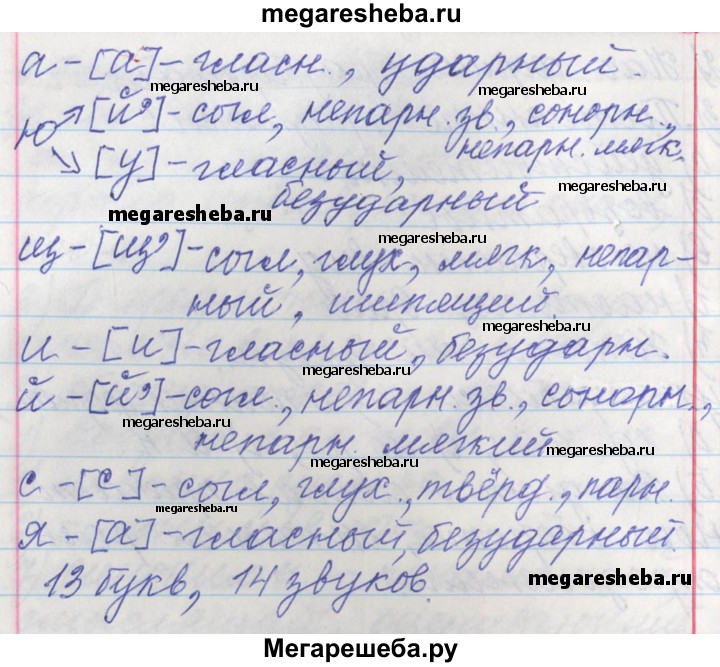 megaresheba.ru
а – [а] – гласн., ударный.
megaresheba.ru
[й'] – согл, непарн. зв., сонорн.,
ю
непарн. мягк.
[у] – гласный,
megaresheba.ru
безударный
megaresheba.ru
щ – [щ'] – согл, глух, мягк, непар-
megaresheba.ru
ный, шипящий.
megaresheba.ru
и – [и] – гласный, безударн.
megaresheba.ru
й – [й'] – согл., непарн. зв., сонорн.,
megaresheba.ru
непарн. мягкий
megaresheba.ru
с – [с] – согл, глух., твёрд., парн.
megaresheba.ru
я – [а] – гласный, безударный.
13 букв, 14 звуков.
megaresheba.ru
Мегарешеба.ру